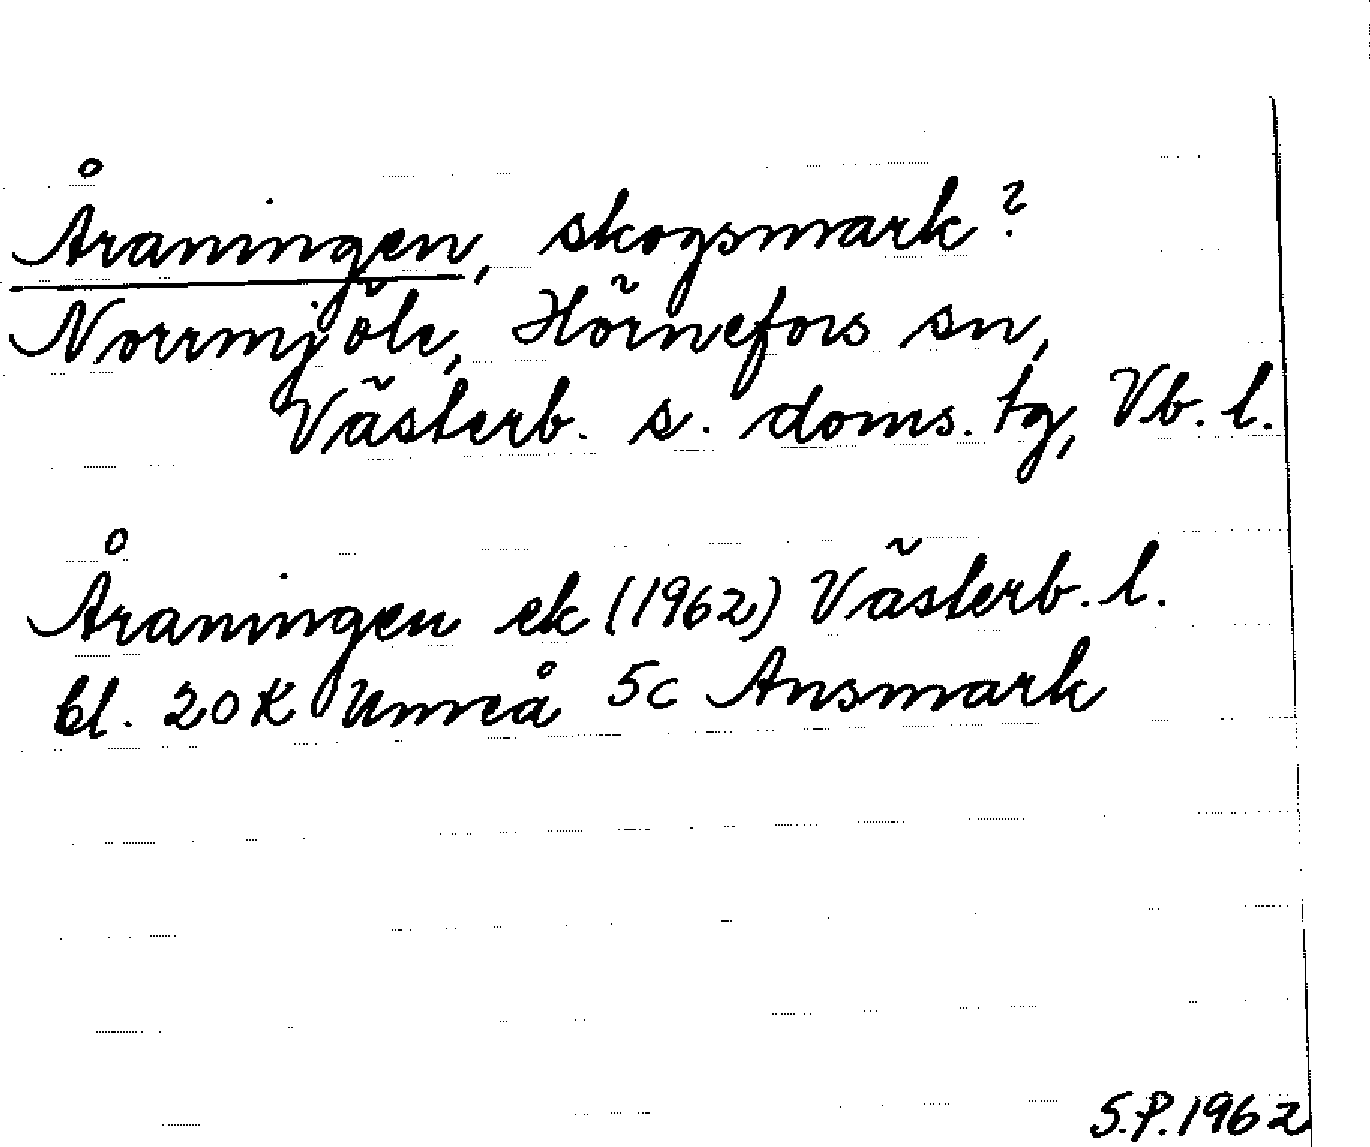 Åraningen, skogsmark?
Norrmjöle, Hörnefors sn,
Västerb. s. doms. tg, Vb. l.
Åraningen ek (1962) Västerb. l.
bl. 20 K Umeå 5c Ansmark
S.P. 1962